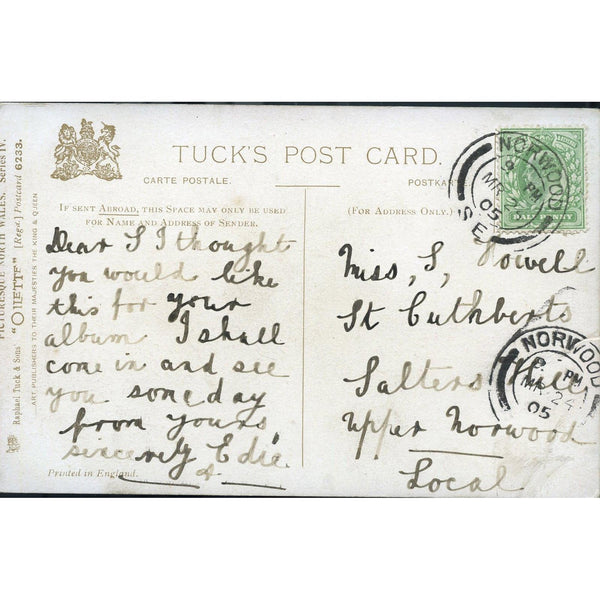 PICTURESQUE NORTH WALES. Series IV.
Raphael Tuck & Sons' "OILETTE" [Regd.] Postcard 6233.
ART PUBLISHERS TO THEIR MAJESTIES THE KING & QUEEN
TUCK'S POST CARD.
CARTE POSTALE.
POSTKA
IF SENT ABROAD, THIS SPACE MAY ONLY BE USED
FOR NAME AND ADDRESS OF SENDER.
(FOR ADDRESS ONLY.)
Dear S I thought
you would like
this for your
album I shall
come in and see
you someday
from yours
sincerely Edie
Printed in England.
Miss, S, Powell
St Cuthberts
Salters Hill
Upper Norwood
Local
NORWOOD
PM
MR 24
05
S.E
HALFPENNY
NORWOOD
PM
MR 24
05